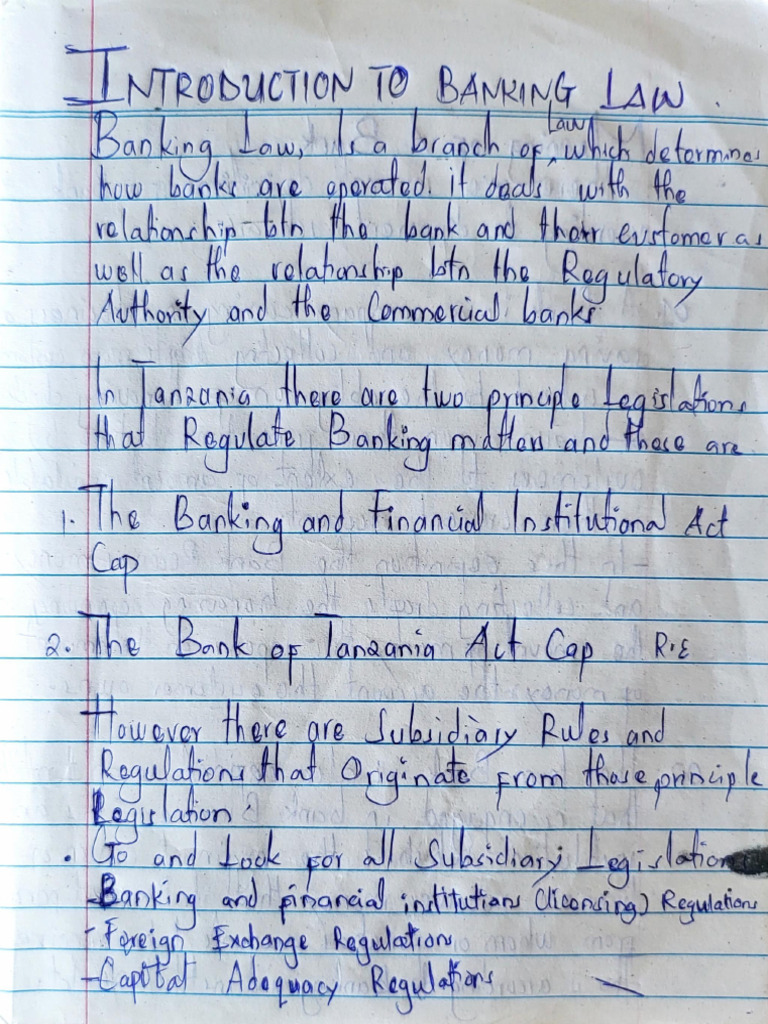 INTRODUCTION TO BANKING LAW.
Banking Law, is a branch of Law which determines
how banks are operated. it deals with the
relationship btn the bank and their customer as
well as the relationship btn the Regulatory
Authority and the Commercial banks
In Tanzania there are two principle Legislations
that Regulate Banking matters and these are
1. The Banking and Financial Institutional Act
Cap
2. The Bank of Tanzania Act Cap R.E
However there are Subsidiary Rules and
Regulations that Originate from those principle
Legislation.
• Go and Look for all Subsidiary Legislation
- Banking and financial institutions (licensing) Regulations
- Foreign Exchange Regulations
- Capital Adequacy Regulations